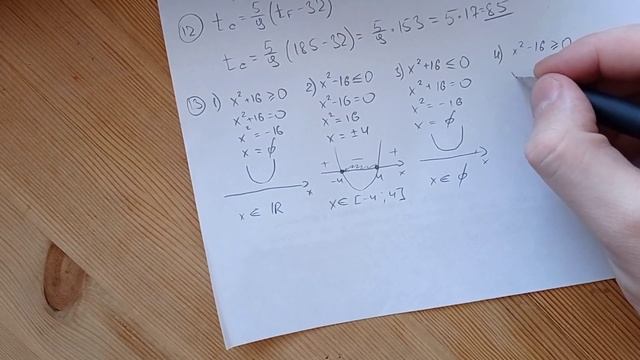 12 t_c = 5/9 (t_F - 32)
t_c = 5/9 (185 - 32) = 5/9 · 153 = 5 · 17 = 85
13 1) x² + 16 ≥ 0
x² + 16 = 0
x² = -16
x = ∅
x
x ∈ ℝ
2) x² - 16 ≤ 0
x² - 16 = 0
x² = 16
x = ± 4
+ - +
-4 4 x
x ∈ [-4; 4]
3) x² + 16 ≤ 0
x² + 16 = 0
x² = -16
x = ∅
x
x ∈ ∅
4) x² - 16 ≥ 0